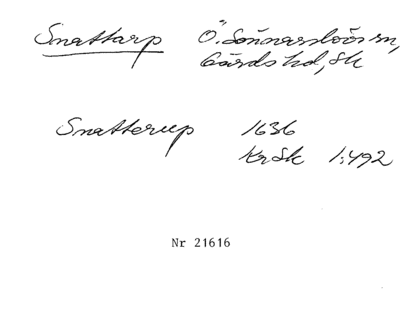 Snattarp Ö. Sönnarslövs sn,
Gärds hd, Sk
Snatterup 1636
KrSk 1:492
Nr 21616